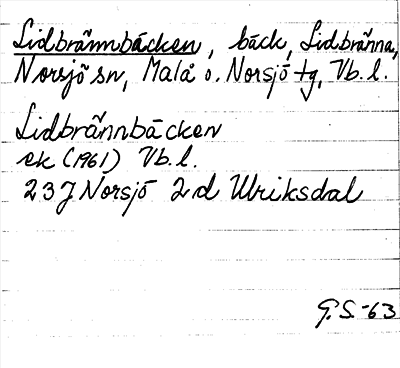 Lidbrännbäcken, bäck, Lidbränna,
Norsjö sn, Malå o. Norsjö tg, Vb. l.
Lidbrännbäcken
ek (1961) Vb. l.
23J Norsjö 2d Ulriksdal
G.S-63